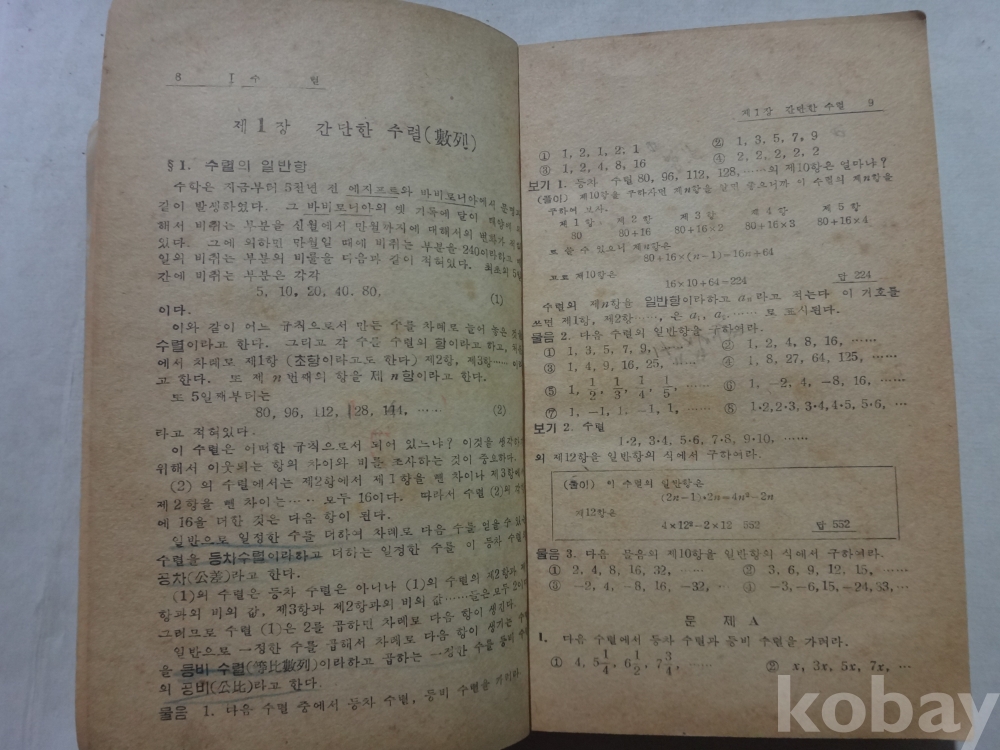 8 I 수 열
제1장 간단한 수렬(數列)
§1. 수렬의 일반항
수학은 지금부터 5천년 전 에지프트와 바비로니아에서
같이 발생하였다. 그 바비로니아의 옛 기록에 달이
해서 비취는 부분을 신월에서 만월까지에 대해서의 변화가
있다. 그에 의하면 만월일 때에 비취는 부분을 240이라하고
일의 비취는 부분의 비률을 다음과 같이 적혀있다. 최초의 5일
간에 비취는 부분은 각각
5, 10, 20, 40. 80, (1)
이다.
이와 같이 어느 규칙으로서 만든 수를 차례로 늘어 놓은 것을
수렬이라고 한다. 그리고 각 수를 수렬의 항이라고 하고,
에서 차례로 제1항 (초항이라고도 한다) 제2항, 제3항……
고 한다. 또 제n번째의 항을 제n항이라고 한다.
또 5일째부터는
80, 96, 112, 128, 144, …… (2)
타고 적혀있다.
이 수렬은 어떠한 규칙으로서 되어 있느냐? 이것을 생각하
위해서 이웃되는 항의 차이와 비를 조사하는 것이 중요하다.
(2) 의 수렬에서는 제2항에서 제1항을 뺀 차이나 제3항에서
제2항을 뺀 차이는…… 모두 16이다. 따라서 수렬 (2)의 각항
에 16을 더한 것은 다음 항이 된다.
일반으로 일정한 수를 더하여 차례로 다음 수를 얻을 수 있는
수렬을 등차수렬이라하고 더하는 일정한 수를 이 등차 수렬의
공차(公差)라고 한다.
(1)의 수렬은 등차 수렬은 아니나 (1)의 수렬의 제2항과 제1
항과의 비의 값, 제3항과 제2항과의 비의 값……들은모두 2이다.
그러므로 수렬 (1)은 2를 곱하면 차례로 다음 항이 생긴다.
일반으로 일정한 수를 곱해서 차례로 다음 항이 생기는 수렬
을 등비 수렬(等比數列)이라하고 곱하는 일정한 수를 등비 수렬
의 공비(公比)라고 한다.
물음 1. 다음 수렬 중에서 등차 수렬, 등비 수렬을 가리라.
제1장 간단한 수렬 9
① 1, 2, 1, 2, 1 ② 1, 3, 5, 7, 9
③ 1, 2, 4, 8, 16 ④ 2, 2, 2, 2, 2
보기 1. 등차 수렬 80, 96, 112, 128, ……의 제10항은 얼마냐?
(풀이) 제10항을 구하자면 제n항을 알면 좋으니까 이 수렬의 제n항을
구하여 보자.
제1항 제2항 제3항 제4항 제5항
80 80+16 80+16×2 80+16×3 80+16×4
로 쓸 수 있으니 제n항은
80+16×(n-1)=16n+64
고로 제10항은
16×10+64=224 답 224
수렬의 제n항을 일반항이라하고 aₙ라고 적는다 이 기호를
쓰면 제1항, 제2항……, 은 a₁, a₂ …… 로 표시된다.
물음 2. 다음 수렬의 일반항을 구하여라.
① 1, 3, 5, 7, 9, …… ② 1, 2, 4, 8, 16, ……
③ 1, 4, 9, 16, 25, …… ④ 1, 8, 27, 64, 125, ……
⑤ 1, 1/2, 1/3, 1/4, 1/5, …… ⑥ 1, -2, 4, -8, 16, ……
⑦ 1, -1, 1, -1, 1, …… ⑧ 1·2,2·3, 3·4,4·5, 5·6, …
보기 2. 수렬
1·2, 3·4, 5·6, 7·8, 9·10, ……
의 제12항을 일반항의 식에서 구하여라.
(풀이) 이 수렬의 일반항은
(2n-1)·2n=4n²-2n
제12항은
4×12²-2×12 552 답 552
물음 3. 다음 물음의 제10항을 일반항의 식에서 구하여라.
① 2, 4, 8, 16, 32, …… ② 3, 6, 9, 12, 15, ……
③ -2, 4, -8, 16, -32, … ④ -3, -6, 15, -24, 33, …
문 제 A
1. 다음 수렬에서 등차 수렬과 등비 수렬을 가려라.
① 4, 5 1/4, 6 1/2, 7 3/4, …… ② x, 3x, 5x, 7x, …
kobay